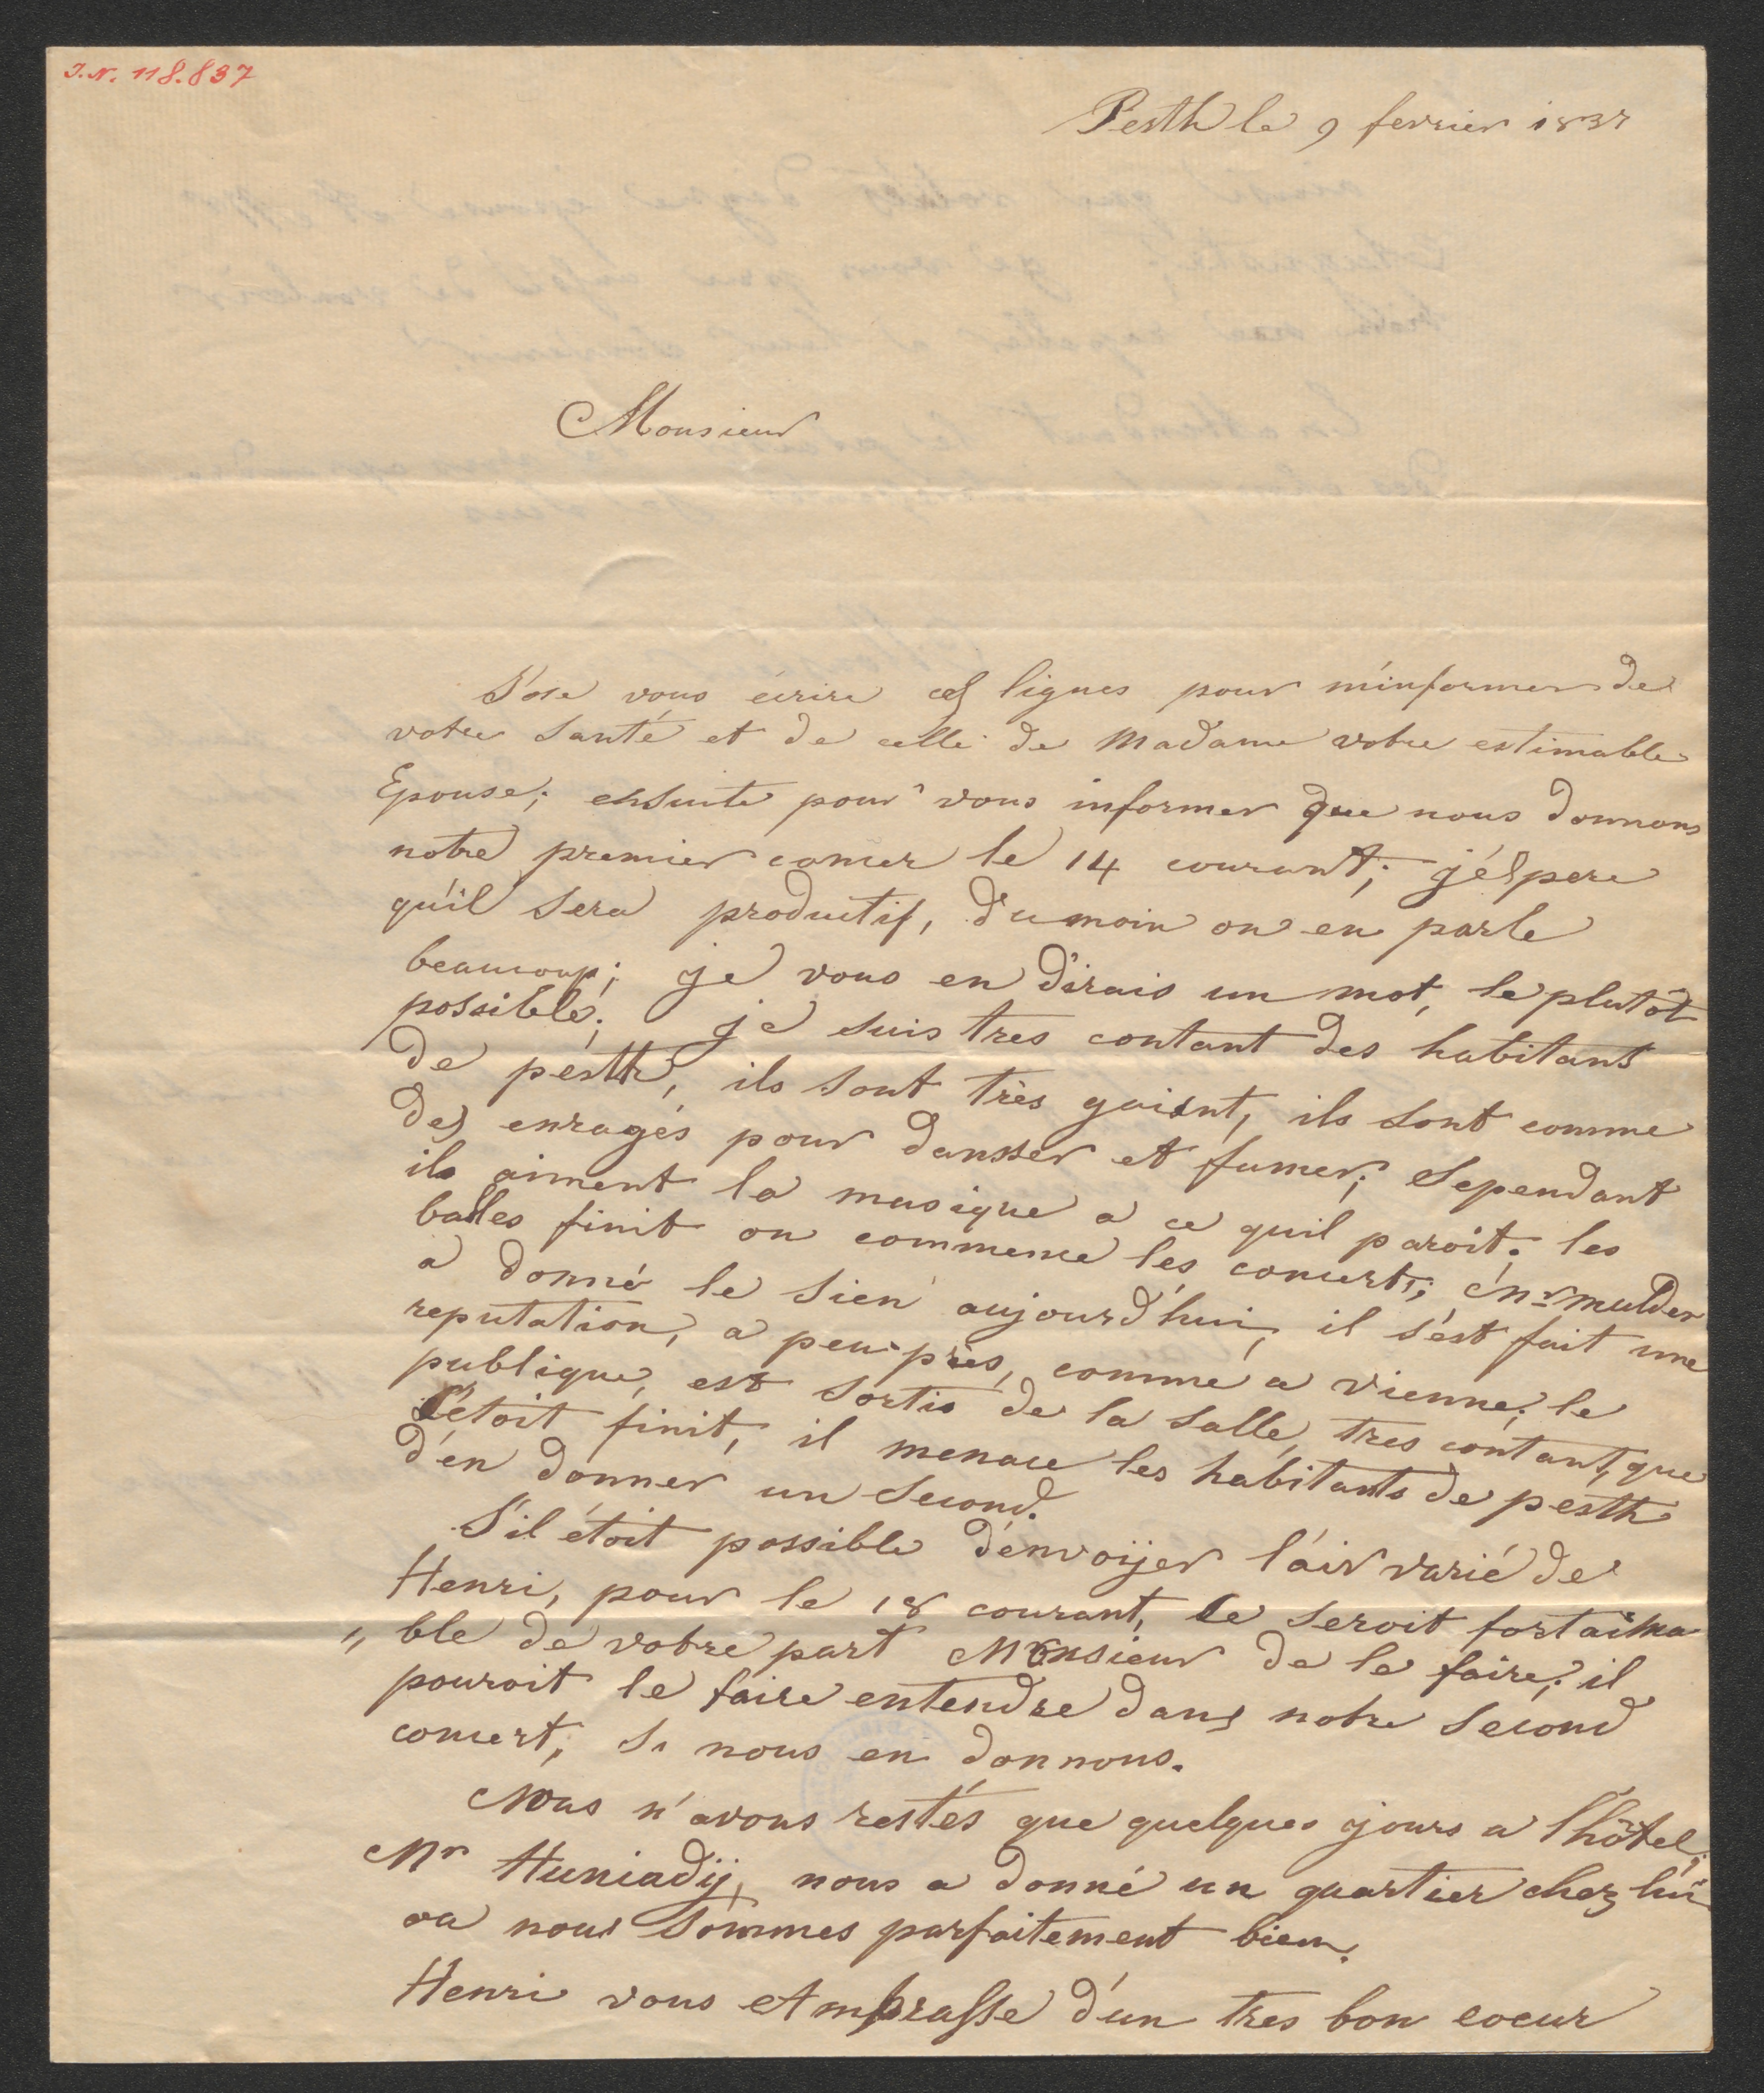 J.N. 118.837
Pesth le 9 fevrier 1837
Monsieur
J'ose vous écrire ces lignes pour m'informer de
votre santé et de celle de Madame votre estimable
Epouse; ensuite pour vous informer que nous donnons
notre premier concer le 14 courant; j'éspere
qu'il sera productif, du moin on en parle
beaucoup; je vous en dirais un mot, le plutôt
possible; je suis tres contant des habitants
de pesth, ils sont très gaient, ils sont comme
des enragés pour dansser et fumer; sependant
ils aiment la musique a ce quil paroit; les
balles finit on commence les concerts; Mr mulder
a donné le sien aujourd'hui, il s'est fait une
reputation, a peu-près, comme a vienne; le
publique, est sortis de la salle, tres contant, que
c'étoit finit, il menace les habitants de pesth
d'en donner un second.
S'il étoit possible d'envoijer l'air varié de
Henri, pour le 18 courant, ce seroit fort aima
„ ble de votre part Monsieur de le faire; il
pouroit le faire entendre dans notre second
concert; si nous en donnons.
Nous n'avons restés que quelques jours a l'hôtel;
Mr Huniadij, nous a donné un quartier chez lui
ou nous sommes parfaitement bien.
Henri vous Ambrasse d'un tres bon coeur